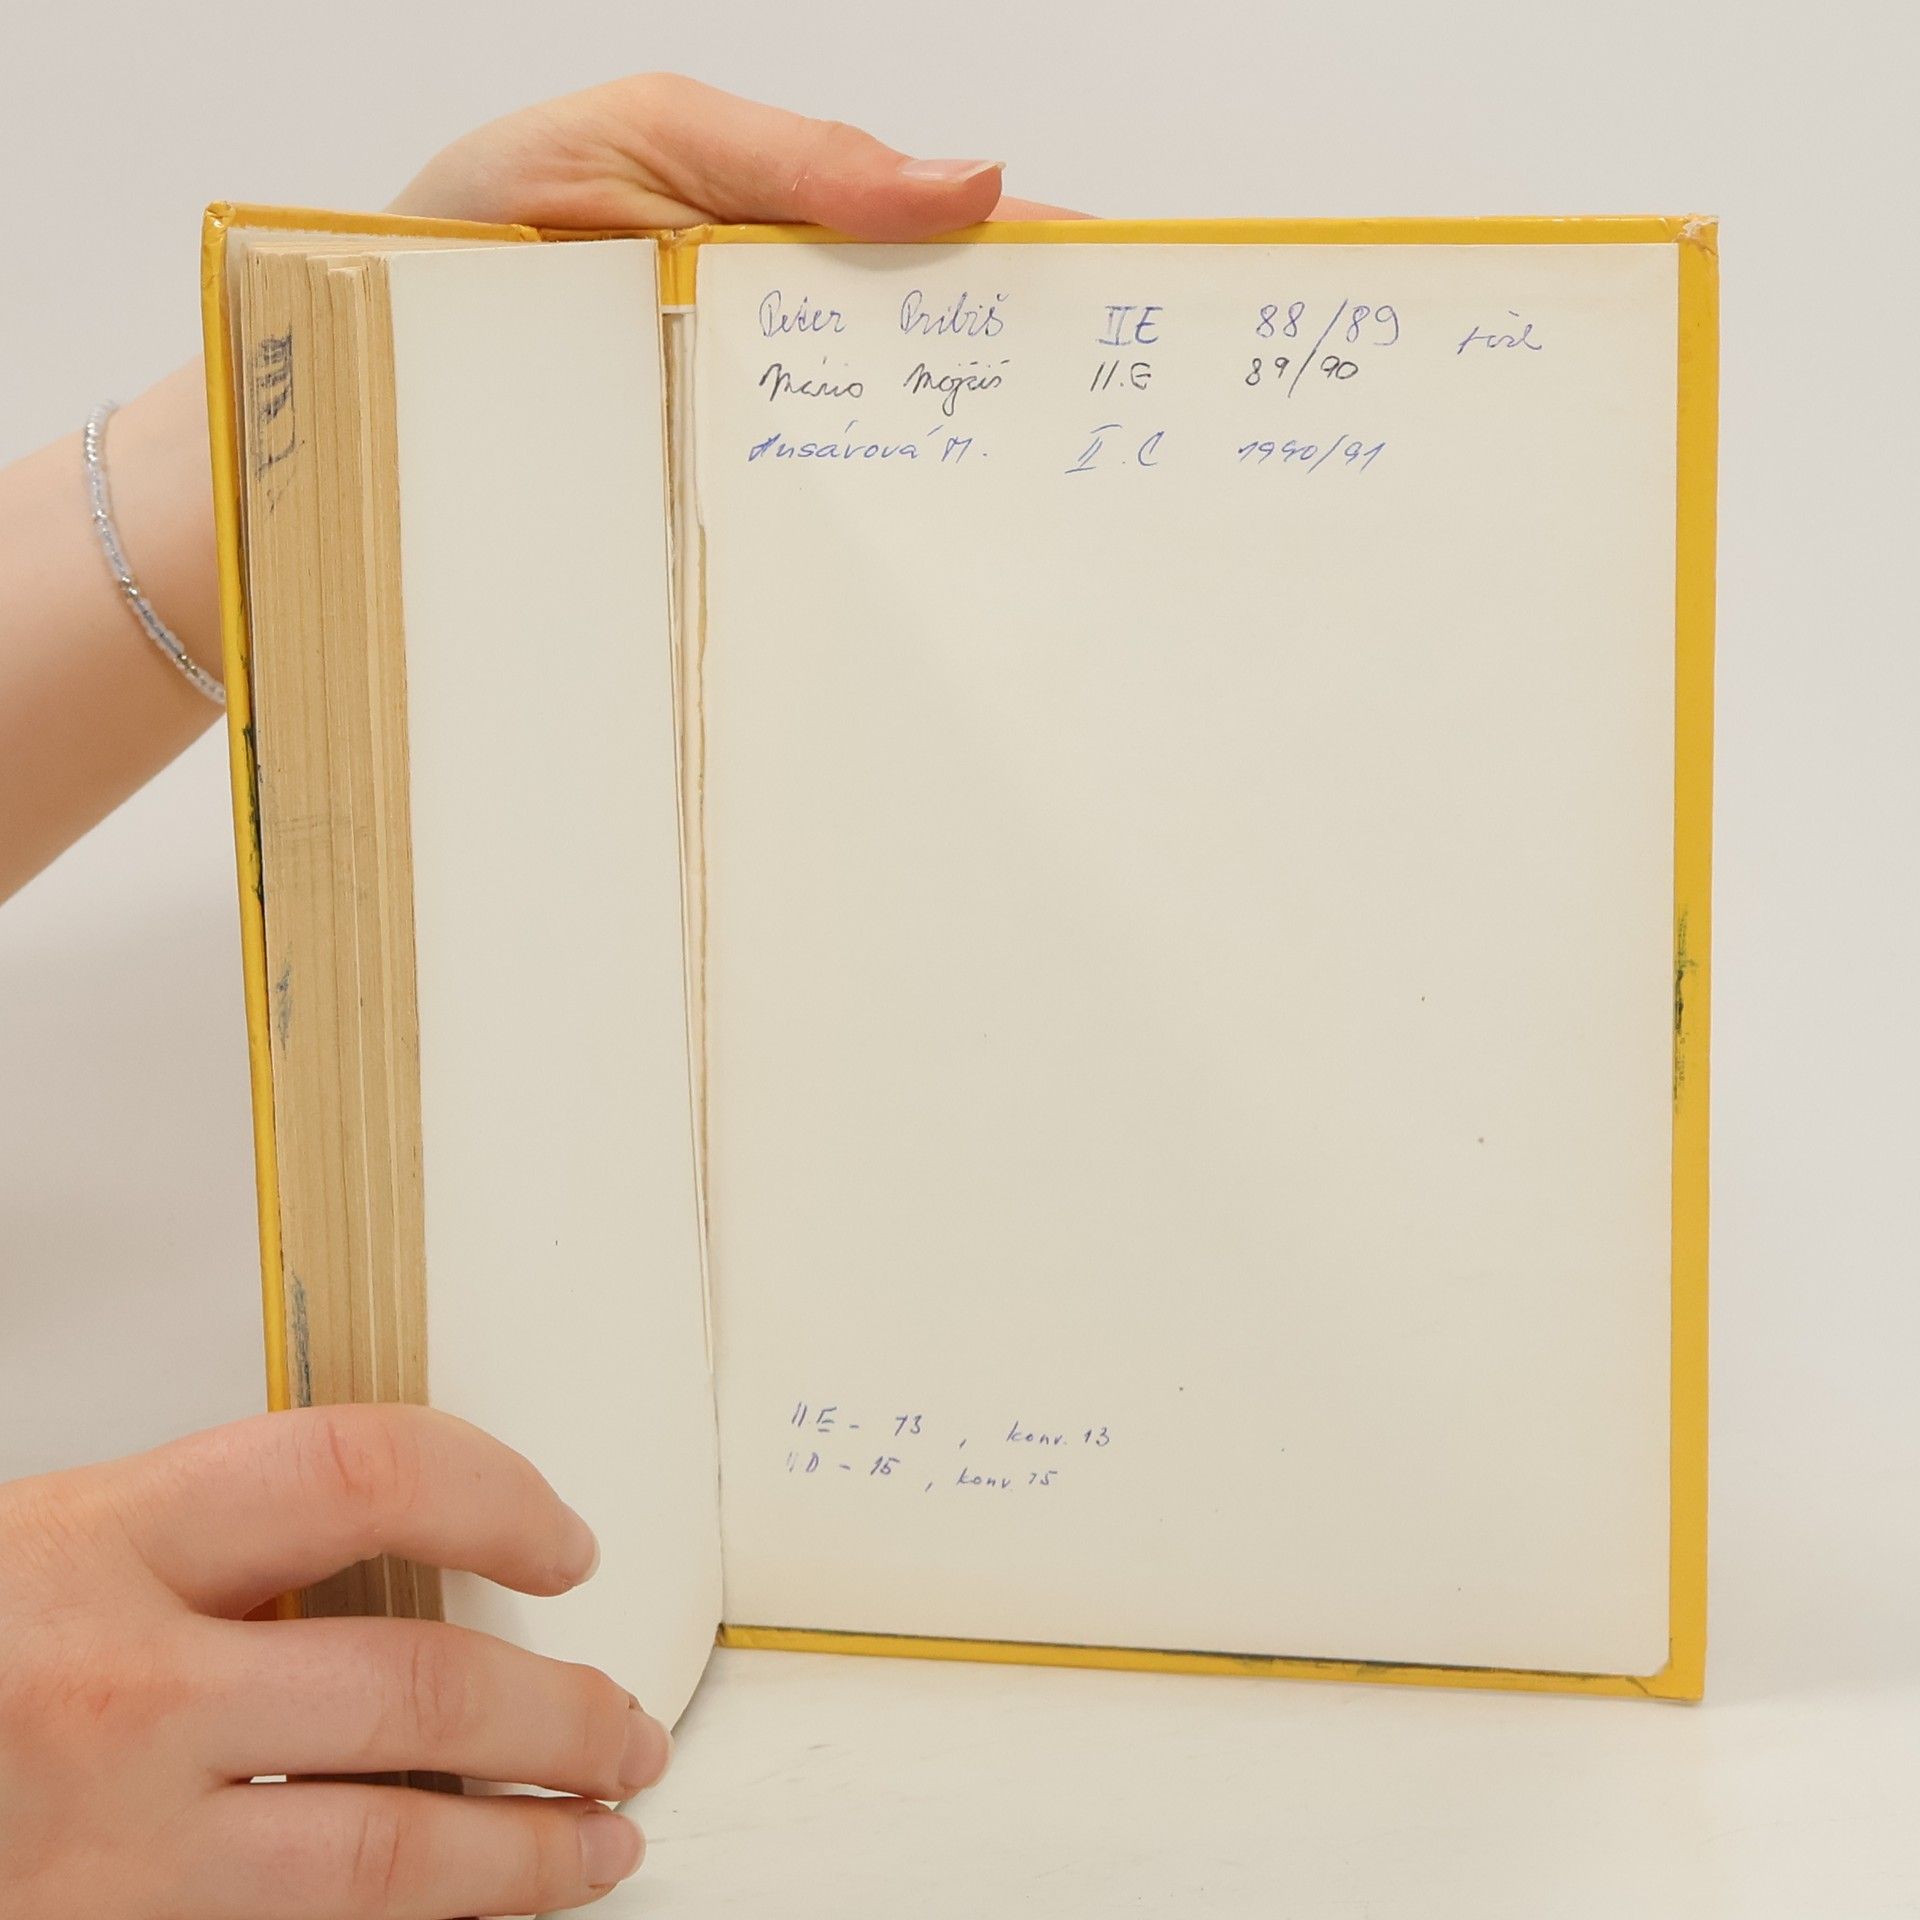 Peter Pribiš IIE 88/89
Mário Mojžiš II.E 89/90
Husárová M. II.C 1990/91
II E - 13, konv. 13
II D - 15, konv. 15